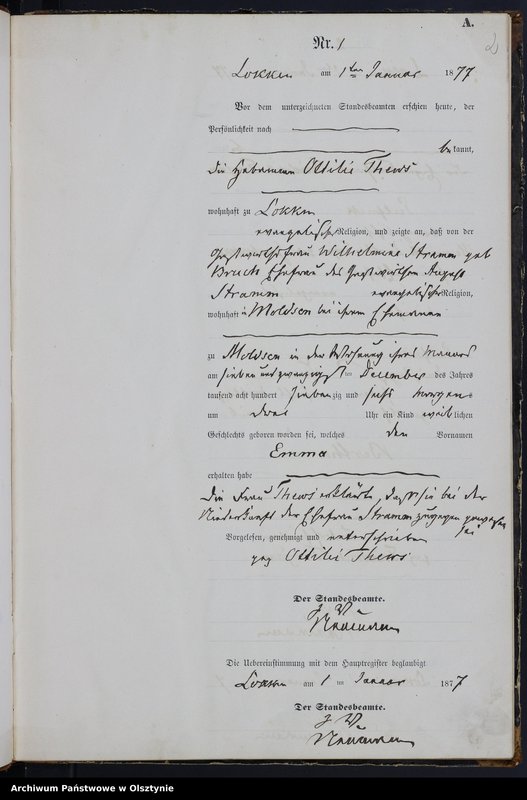 A.
2
Nr. 1
Locken am 1ten Januar 1877
Vor dem unterzeichneten Standesbeamten erschien heute, der
Persönlichkeit nach
bekannt,
die Hebamme Ottilie Thews
wohnhaft zu Locken
evangelischer Religion, und zeigte an, daß von der
Gastwirthsfrau Wilhelmine Stramm geb
Bruck Ehefrau des Gastwirthen August
Stramm evangelischer Religion,
wohnhaft in Moldsen bei ihrem Ehemanne
zu Moldsen in der Wohnung ihres Mannes
am sieben und zwanzigst ten December des Jahres
tausend acht hundert siebenzig und sechs Morgens
um drei Uhr ein Kind weiblichen
Geschlechts geboren worden sei, welches den Vornamen
Emma
erhalten habe
die Frau Thews erklärte, daß sie bei der
Niederkunft der Ehefrau Stramm zugegen gewesen
sei
Vorgelesen, genehmigt und unterschrieben
gez Ottilie Thews
Der Standesbeamte.
Die Uebereinstimmung mit dem Hauptregister beglaubigt
Locken am 1 ten Januar 1877
Der Standesbeamte.
Archiwum Państwowe w Olsztynie